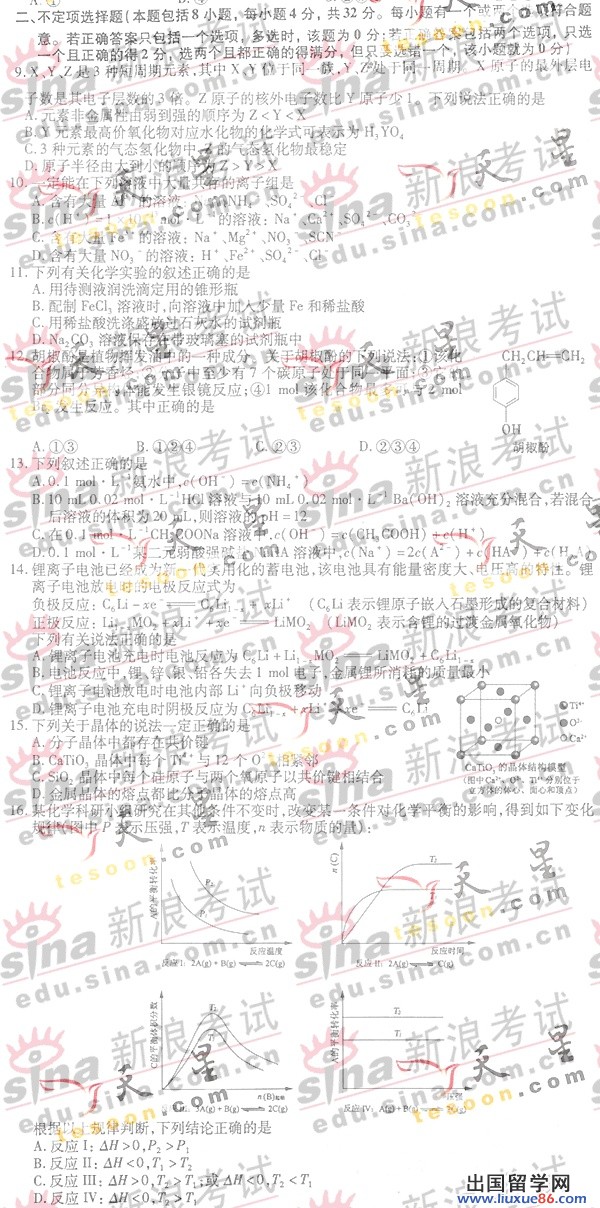 二、不定项选择题(本题包括8小题,每小题4分,共32分。每小题有一个或两个选项符合题
意。若正确答案只包括一个选项,多选时,该题为0分;若正确答案包括两个选项,只选
一个且正确的得2分,选两个且都正确的得满分,但只要选错一个,该小题就为0分)
9.X、Y、Z是3种短周期元素,其中X、Y位于同一族,Y、Z处于同一周期。X原子的最外层电
子数是其电子层数的3倍。Z原子的核外电子数比Y原子少1。下列说法正确的是
A.元素非金属性由弱到强的顺序为Z<Y<X
B.Y元素最高价氧化物对应水化物的化学式可表示为H₃YO₄
C.3种元素的气态氢化物中,Z的气态氢化物最稳定
D.原子半径由大到小的顺序为Z>Y>X
10.一定能在下列溶液中大量共存的离子组是
A.含有大量 的溶液: NH₄⁺、SO₄²⁻、Cl⁻
B.c(H⁺)=1×10 mol·L⁻¹的溶液:Na⁺、Ca²⁺、SO₄²⁻、CO₃²⁻
C.含有大量Fe 的溶液:Na⁺、Mg²⁺、NO₃⁻、SCN⁻
D.含有大量NO₃⁻的溶液:H⁺、Fe²⁺、SO₄²⁻、Cl⁻
11.下列有关化学实验的叙述正确的是
A.用待测液润洗滴定用的锥形瓶
B.配制FeCl₃溶液时,向溶液中加入少量Fe和稀盐酸
C.用稀盐酸洗涤盛放过石灰水的试剂瓶
D.Na₂CO₃溶液保存在带玻璃塞的试剂瓶中
12.胡椒酚是植物挥发油中的一种成分。关于胡椒酚的下列说法:①该化
合物属于芳香烃;②分子中至少有7个碳原子处于同一平面;③它的
部分同分异构体能发生银镜反应;④1 mol该化合物最多可与2 mol
发生反应。其中正确的是
A.①③ B.①②④ C.②③ D.②③④
CH₂CH=CH₂
OH
胡椒酚
13.下列叙述正确的是
A.0.1 mol·L⁻¹氨水中,c(OH⁻)=c(NH₄⁺)
B.10 mL 0.02 mol·L⁻¹HCl溶液与10 mL 0.02 mol·L⁻¹ Ba(OH)₂溶液充分混合,若混合
后溶液的体积为20 mL,则溶液的pH=12
C.在0.1 mol·L⁻¹CH₃COONa溶液中,c(OH⁻)=c(CH₃COOH)+c(H⁺)
D.0.1 mol·L⁻¹某二元弱酸强碱盐NaHA溶液中,c(Na⁺)=2c(A²⁻)+c(HA⁻)+c(H₂A)
14.锂离子电池已经成为新一代实用化的蓄电池,该电池具有能量密度大、电压高的特性。锂
离子电池放电时的电极反应式为
负极反应:C₆Li-xe⁻=C₆Li₁₋ₓ+xLi⁺ (C₆Li表示锂原子嵌入石墨形成的复合材料)
正极反应:Li₁₋ₓMO₂+xLi⁺+xe⁻=LiMO₂ (LiMO₂表示含锂的过渡金属氧化物)
下列有关说法正确的是
A.锂离子电池充电时电池反应为C₆Li+Li₁₋ₓMO₂=LiMO₂+C₆Li₁₋ₓ
B.电池反应中,锂、锌、银、铅各失去1 mol电子,金属锂所消耗的质量最小
C.锂离子电池放电时电池内部Li⁺向负极移动
D.锂离子电池充电时阴极反应为C₆Li₁₋ₓ+xLi⁺+xe⁻=C₆Li
15.下列关于晶体的说法一定正确的是
A.分子晶体中都存在共价键
B.CaTiO₃晶体中每个Ti⁴⁺与12个O²⁻相紧邻
C.SiO₂晶体中每个硅原子与两个氧原子以共价键相结合
D.金属晶体的熔点都比分子晶体的熔点高
●Ti⁴⁺
O²⁻
CaTiO₃的晶体结构模型
(图中Ca²⁺、O²⁻、Ti⁴⁺分别位于
立方体的体心、面心和顶点)
16.某化学科研小组研究在其他条件不变时,改变某一条件对化学平衡的影响,得到如下变化
规律(图中P表示压强,T表示温度,n表示物质的量):
A的平衡转化率
P₂
P₁
反应温度
反应I: 2A(g)+B(g)⇌2C(g)
n(C)
T₂
反应时间
反应II: 2A(g)⇌C(g)
C的平衡体积分数
T₂
T₁
n(B)起始
3A(g)+B(g)⇌2C(g)
A的平衡转化率
T₂
T₁
压强
反应IV: A(g)+B(g)⇌2C(g)
根据以上规律判断,下列结论正确的是
A.反应I:ΔH>0,P₂>P₁
B.反应II:ΔH<0,T₁>T₂
C.反应III:ΔH>0,T₂>T₁;或ΔH<0,T₂<T₁
D.反应IV:ΔH<0,T₂>T₁
sina 新浪考试
edu.sina.com.cn
天星
tesoon.com
出国留学网
www.liuxue86.com